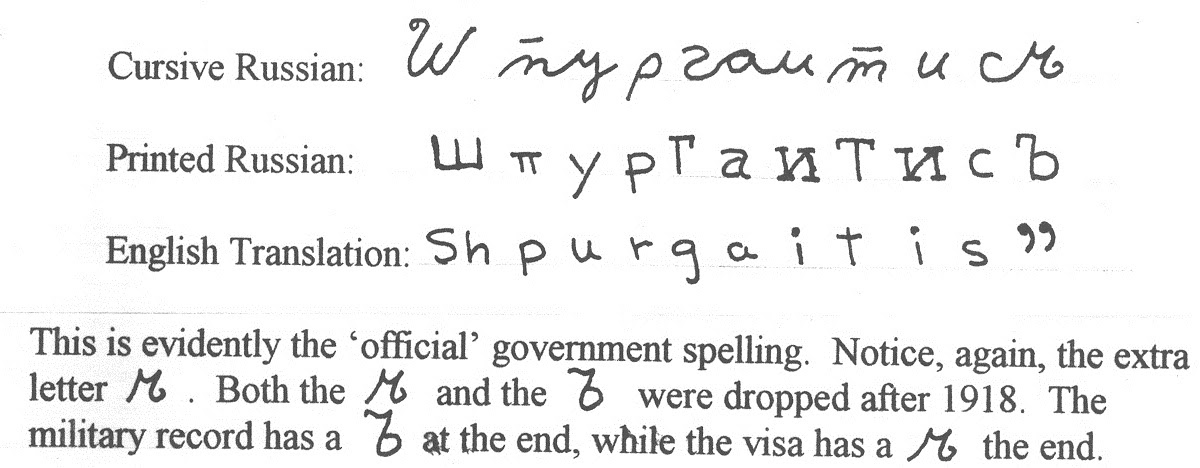 Cursive Russian: Шпургаитисъ
Printed Russian: ШпурГаиТисЪ
English Translation: Shpurgaitis”
This is evidently the ‘official’ government spelling. Notice, again, the extra
letter ъ . Both the ъ and the Ъ were dropped after 1918. The
military record has a Ъ at the end, while the visa has a ъ the end.